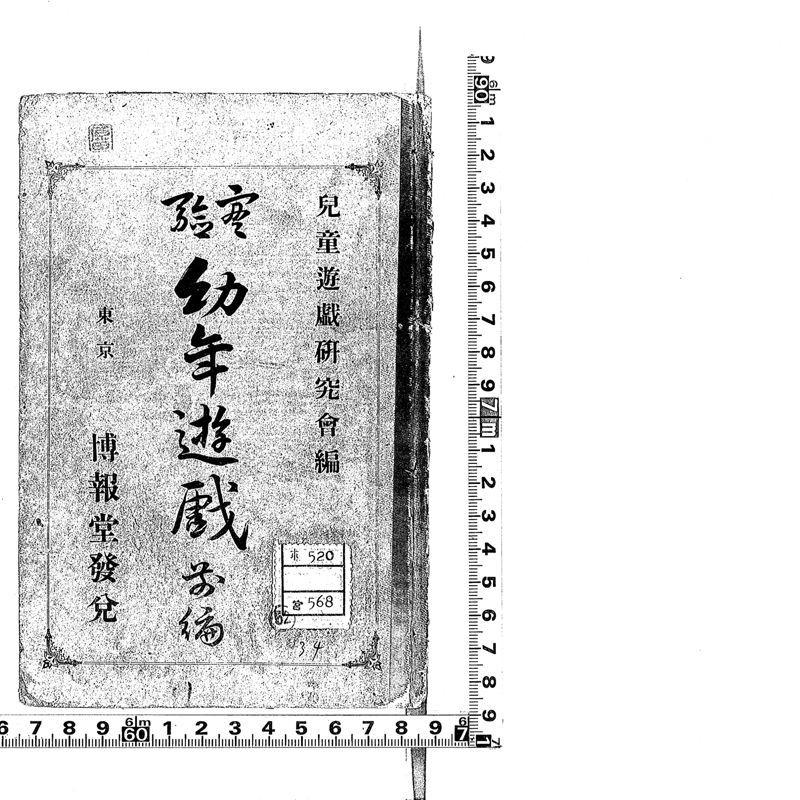 兒童遊戲研究會編
實驗
幼年遊戲
前編
東京
博報堂發兌
520
568
34
9
6|m
90
1
2
3
4
5
6
7
8
9
7m
1
2
3
4
5
6
7
8
9
6 7 8 9 6|m 60 1 2 3 4 5 6 7 8 9 6 7